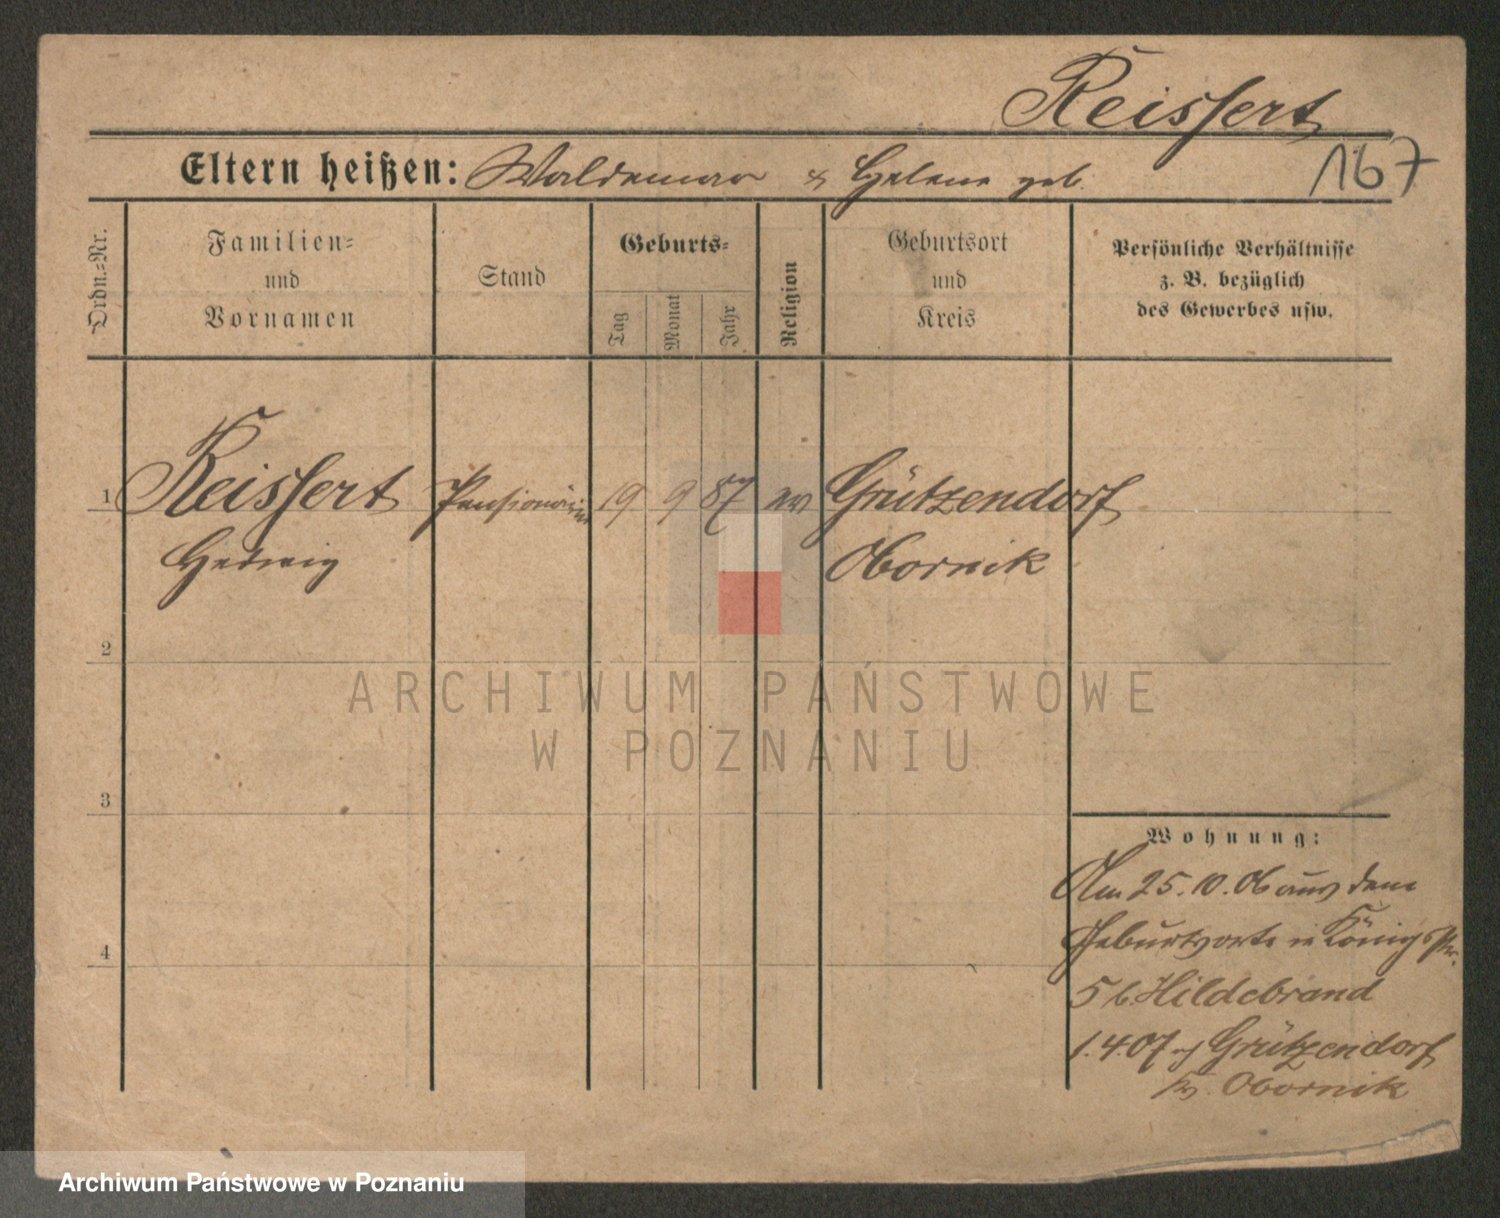 Reissert
167
Eltern heißen: Waldemar & Helene geb.
Ordn.=Nr.
Familien=
und
Vornamen
Stand
Geburts=
Tag
Monat
Jahr
Religion
Geburtsort
und
Kreis
Persönliche Verhältnisse
z. B. bezüglich
des Gewerbes usw.
1 Reissert Pensionärin 19 9 87 ev Grützendorf
Hedwig Obornik
2
ARCHIWUM PAŃSTWOWE
W POZNANIU
3
4
Wohnung:
Am 25.10.06 aus dem
Geburtsorte n Königspl.
5 b. Hildebrand
1.4.07 n Grützendorf
Kr. Obornik
Archiwum Państwowe w Poznaniu